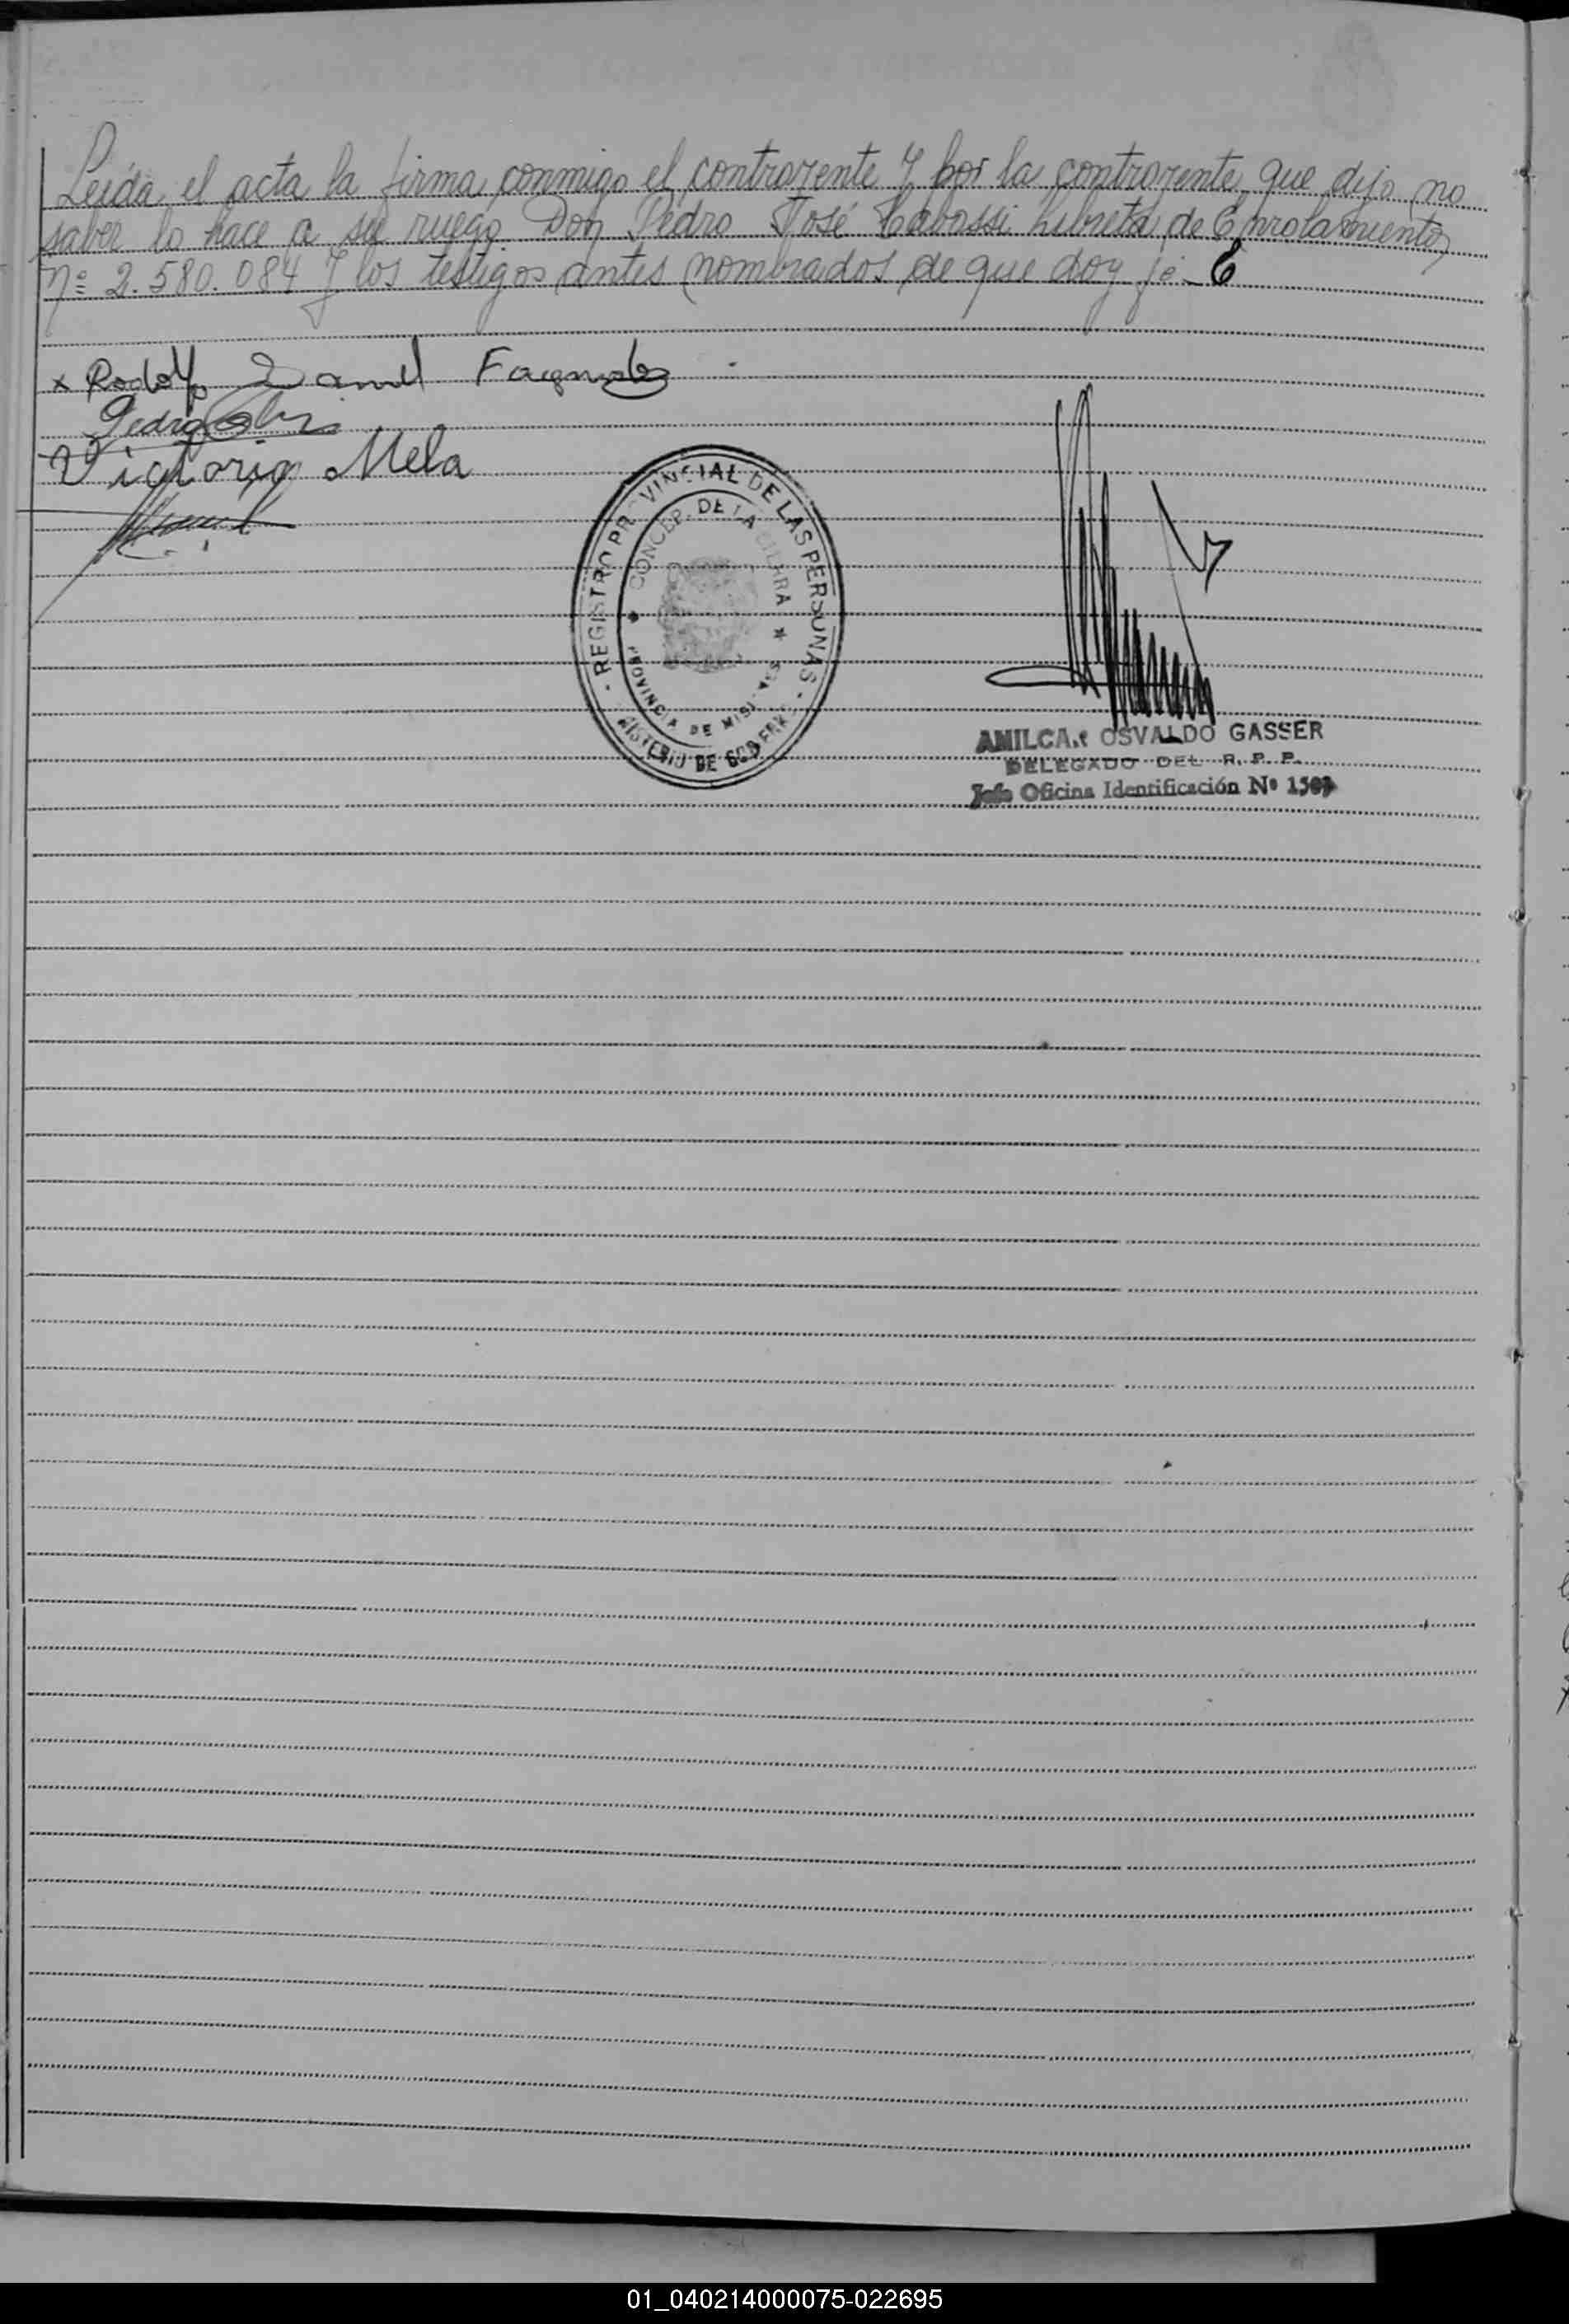 Leída el acta la firma conmigo el contrayente y por la contrayente que dijo no
saber lo hace a su ruego Don Pedro José Libreta de Enrolamiento
nº 2.580.084 y los testigos antes nombrados de que doy fé
x Rodolfo Daniel
Pedro
Victorio Mela
REGISTRO PROVINCIAL DE LAS PERSONAS
CONCEP. DE LA SIERRA
PROVINCIA DE MISIONES
MINISTERIO DE GOBIERNO
AMILCAR OSVALDO GASSER
DELEGADO DEL R. P. P.
Jefe Oficina Identificación Nº
01_040214000075-022695